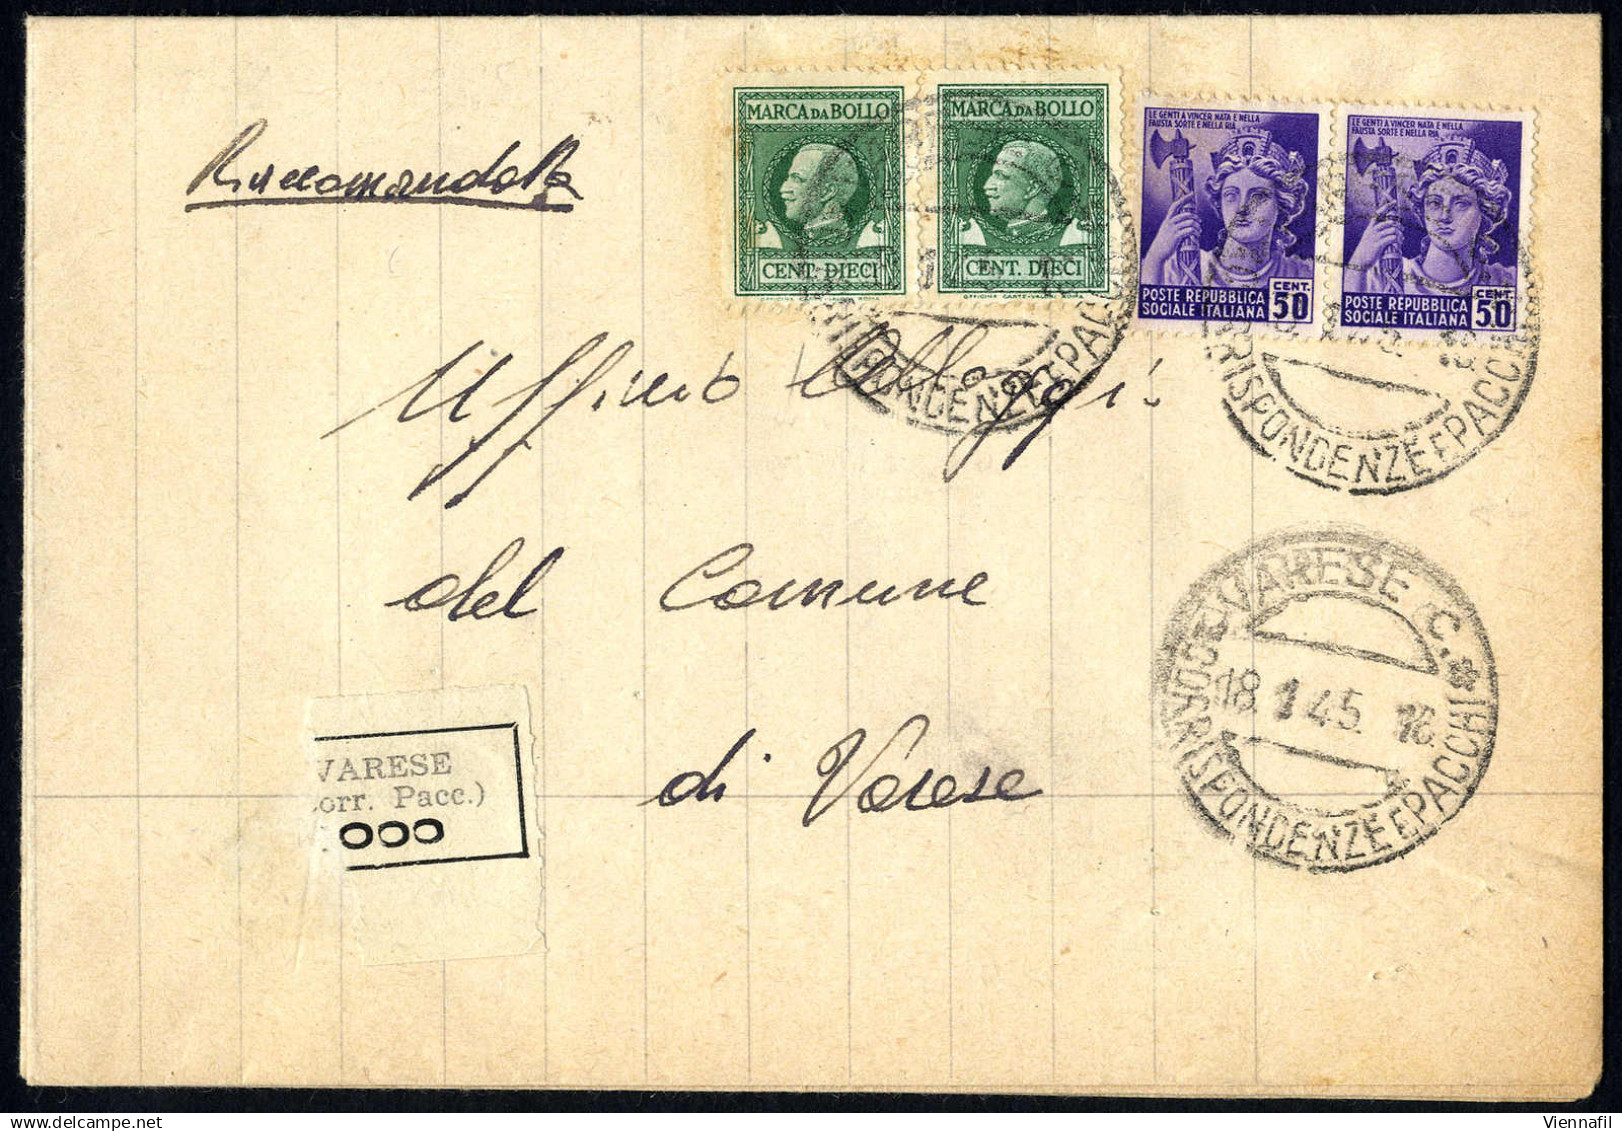 Raccomandata
MARCA DA BOLLO
CENT. DIECI
MARCA DA BOLLO
CENT. DIECI
OFFICINA CARTE-VALORI ROMA
LE GENTI A VINCER NATA E NELLA
FAUSTA SORTE E NELLA RIA
POSTE REPUBBLICA
SOCIALE ITALIANA
CENT.
50
LE GENTI A VINCER NATA E NELLA
FAUSTA SORTE E NELLA RIA
POSTE REPUBBLICA
SOCIALE ITALIANA
CENT.
50
RISPONDENZE E PACCHI
RISPONDENZE E PACCHI
Ufficio Alloggi
del Comune
di Varese
VARESE
orr. Pacc.)
000
VARESE C.
18.1.45.16
CORRISPONDENZE E PACCHI
Viennafil